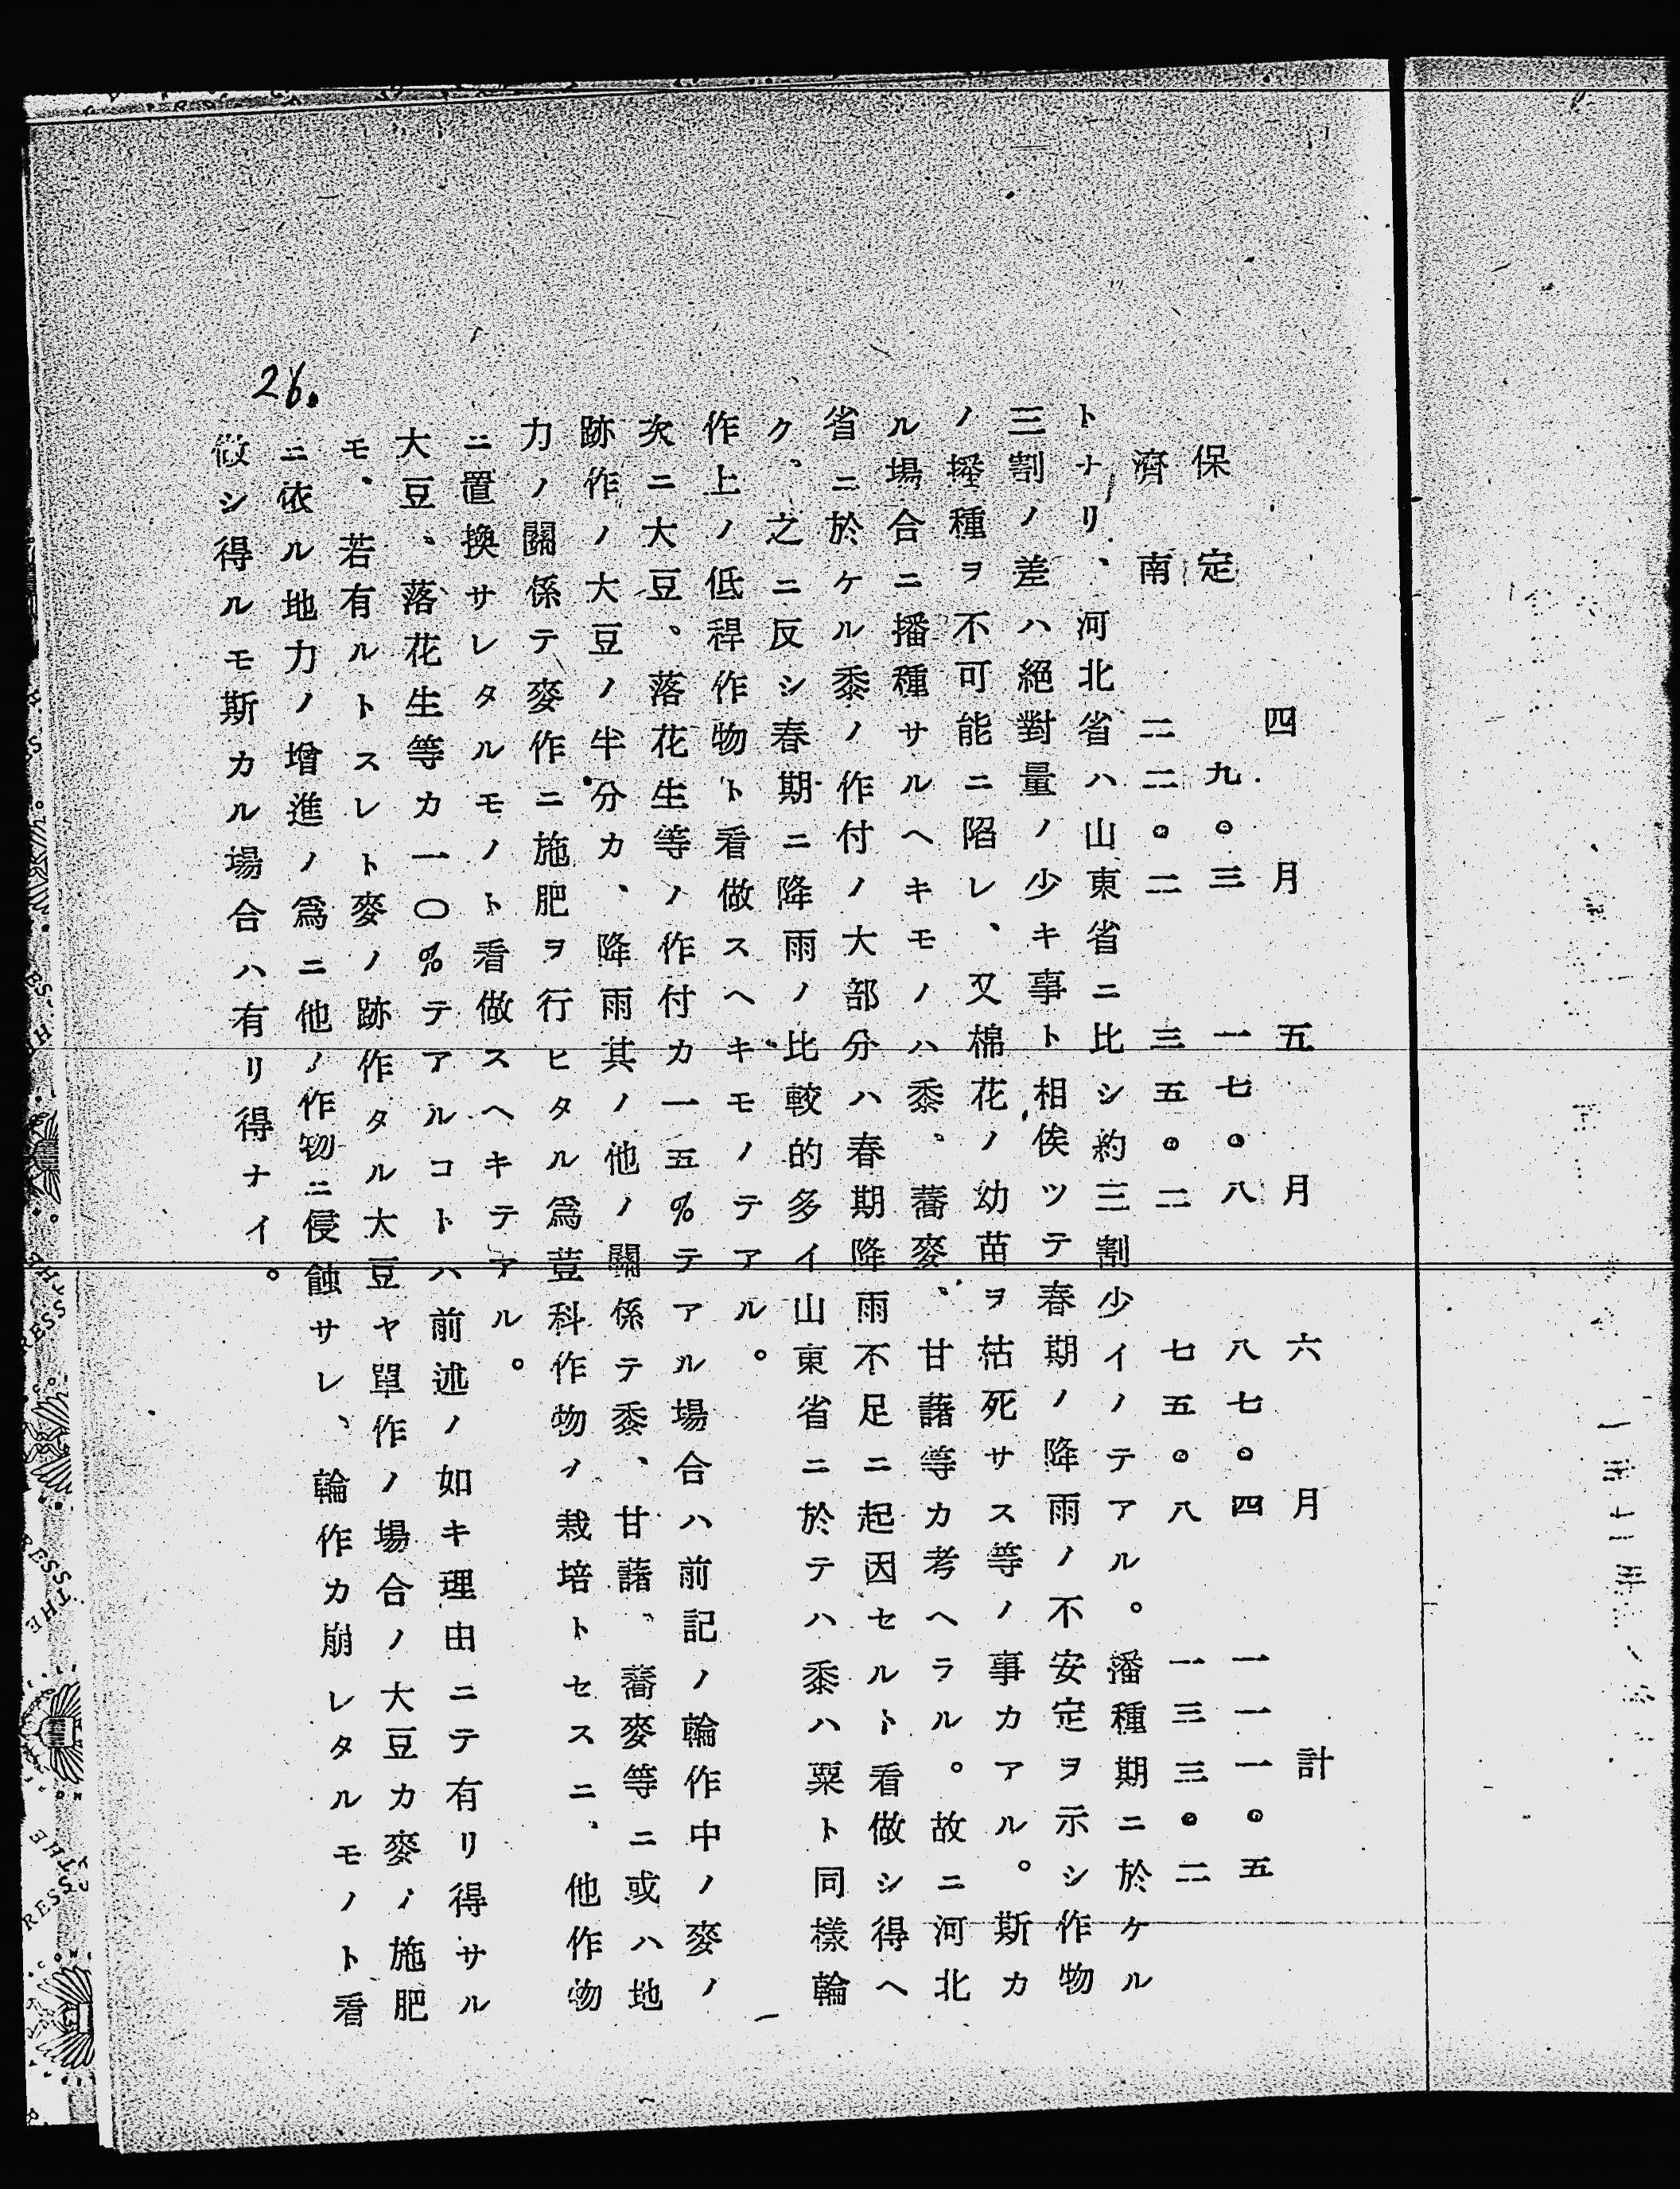 四月　五月　六月　計
保定　九。三　一七。八　八七。四　一一一。五
濟南　二二。二　三五。二　七五。八　一三三。二
トナリ、河北省ハ山東省ニ比シ約三割少イノテアル。播種期ニ於ケル
三割ノ差ハ絕對量ノ少キ事ト相俟ツテ春期ノ降雨ノ不安定ヲ示シ作物
ノ播種ヲ不可能ニ陷レ、又棉花ノ幼苗ヲ枯死サス等ノ事カアル。斯カ
ル場合ニ播種サルヘキモノハ黍、蕎麥、甘藷等カ考ヘラル。故ニ河北
省ニ於ケル黍ノ作付ノ大部分ハ春期降雨不足ニ起因セルト看做シ得ヘ
ク、之ニ反シ春期ニ降雨ノ比較的多イ山東省ニ於テハ黍ハ粟ト同樣輪
作上ノ低稈作物ト看做スヘキモノテアル。
次ニ大豆、落花生等ノ作付カ一五%テアル場合ハ前記ノ輪作中ノ麥ノ
跡作ノ大豆ノ半分カ、降雨其ノ他ノ關係テ黍、甘藷、蕎麥等ニ或ハ地
力ノ關係テ麥作ニ施肥ヲ行ヒタル爲荳科作物ノ栽培トセスニ、他作物
ニ置換サレタルモノト看做スヘキテアル。
大豆、落花生等カ一〇%テアルコトハ前述ノ如キ理由ニテ有リ得サル
モ、若有ルトスレト麥ノ跡作タル大豆ヤ單作ノ場合ノ大豆カ麥ノ施肥
ニ依ル地力ノ增進ノ爲ニ他ノ作物ニ侵蝕サレ、輪作カ崩レタルモノト看
做シ得ルモ斯カル場合ハ有リ得ナイ。
26.